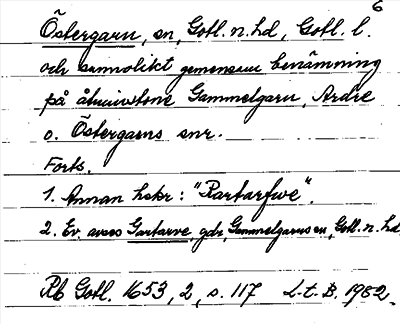 6
Östergarn, sn, Gotl. n. hd, Gotl. l.
och sannolikt gemensam benämning
på åtminstone Gammelgarn, Ardre
o. Östergarns snr.
Forts.
1. Annan hskr: "Rartarfwe".
2. Ev. avses Gartarve, gdr, Gammelgarns sn, Gotl. n. hd
Rb Gotl. 1653, 2, s. 117 L-t. B. 1982.